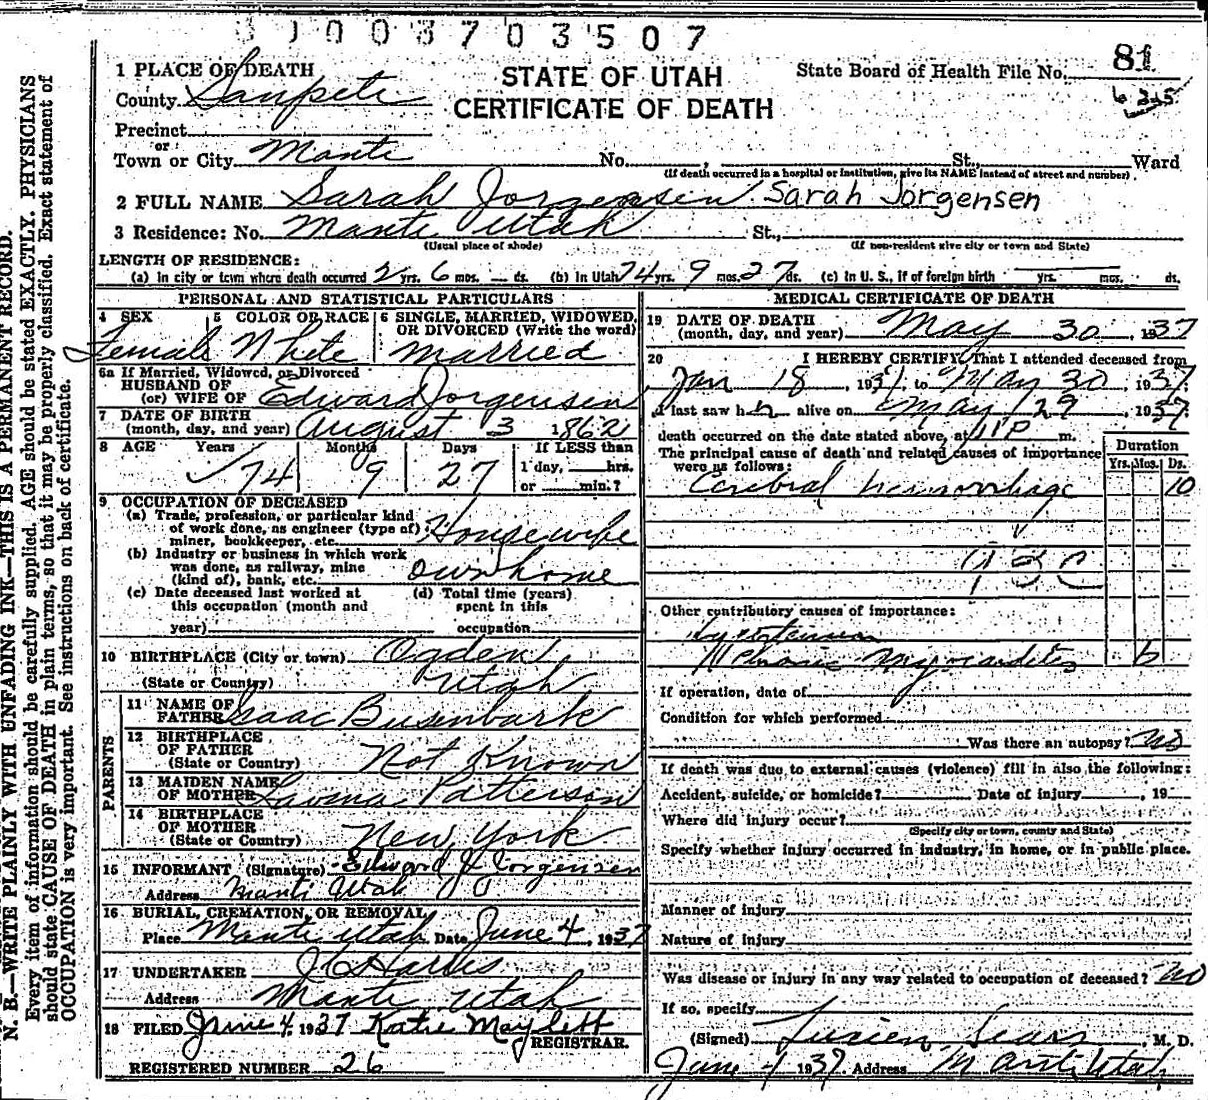 3 7 0 3 5 0 7
81
STATE OF UTAH
CERTIFICATE OF DEATH
State Board of Health File No.
1 PLACE OF DEATH
County Sanpete
Precinct
or
Town or City Manti No. , St., Ward
(If death occurred in a hospital or institution, give its NAME instead of street and number)
2 FULL NAME Sarah Jorgensen Sarah Jorgensen
3 Residence: No. Manti Utah St.,
(Usual place of abode) (If non-resident give city or town and State)
LENGTH OF RESIDENCE:
(a) In city or town where death occurred yrs. 6 mos. — ds. (b) In Utah 74 yrs. 9 mos. 27 ds. (c) In U. S., if of foreign birth yrs. mos. ds.
PERSONAL AND STATISTICAL PARTICULARS
4 SEX 5 COLOR OR RACE 6 SINGLE, MARRIED, WIDOWED, OR DIVORCED (Write the word)
Female White married
6a If Married, Widowed, or Divorced
HUSBAND OF
(or) WIFE OF Edward Jorgensen
7 DATE OF BIRTH
(month, day, and year) August 3 1862
8 AGE Years Months Days If LESS than
74 9 27 1 day, hrs.
or min.?
9 OCCUPATION OF DECEASED
(a) Trade, profession, or particular kind
of work done, as engineer (type of)
miner, bookkeeper, etc. Housewife
(b) Industry or business in which work
was done, as railway, mine
(kind of), bank, etc. own home
(c) Date deceased last worked at
this occupation (month and
year)
(d) Total time (years)
spent in this
occupation
10 BIRTHPLACE (City or town) Ogden
(State or Country) Utah
PARENTS
11 NAME OF
FATHER Isaac Busenbark
12 BIRTHPLACE
OF FATHER
(State or Country) Not Known
13 MAIDEN NAME
OF MOTHER Patterson
14 BIRTHPLACE
OF MOTHER
(State or Country) New York
15 INFORMANT (Signature) Edward J Jorgensen
Address Manti Utah
16 BURIAL, CREMATION, OR REMOVAL
Place Manti Utah Date June 4, 1937
17 UNDERTAKER
Address Manti Utah
18 FILED June 4, 1937 Katie Maylett
REGISTRAR.
REGISTERED NUMBER 26
MEDICAL CERTIFICATE OF DEATH
19 DATE OF DEATH
(month, day, and year) May 30, 1937
20 I HEREBY CERTIFY, That I attended deceased from
Jan 18, 1937, to May 30, 1937.
I last saw h alive on May 29, 1937.
death occurred on the date stated above, at 11 P m.
The principal cause of death and related causes of importance
were as follows:
Duration
Yrs. Mos. Ds.
Cerebral hemorrhage 10
Other contributory causes of importance:
Chronic Myocarditis 6
If operation, date of
Condition for which performed
Was there an autopsy? no
If death was due to external causes (violence) fill in also the following:
Accident, suicide, or homicide? Date of injury , 19
Where did injury occur?
(Specify city or town, county and State)
Specify whether injury occurred in industry, in home, or in public place.
Manner of injury
Nature of injury
Was disease or injury in any way related to occupation of deceased? no
If so, specify
(Signed) Lucien Sears, M. D.
June 4 1937. Address Manti Utah
N. B.—WRITE PLAINLY WITH UNFADING INK—THIS IS A PERMANENT RECORD.
Every item of information should be carefully supplied. AGE should be stated EXACTLY. PHYSICIANS
should state CAUSE OF DEATH in plain terms, so that it may be properly classified. Exact statement of
OCCUPATION is very important. See instructions on back of certificate.